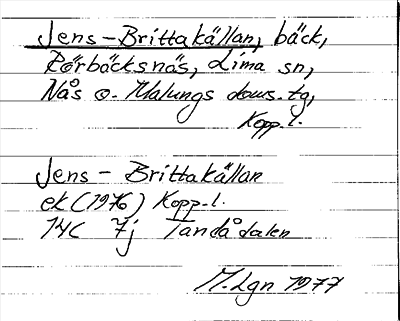 Jens-Brittakällan, bäck,
Rörbäcksnäs, Lima sn,
Nås o. Malungs doms.tg,
Kopp. l.
Jens-Brittakällan
ek (1976) Kopp. l.
14C 7j Tandådalen
M.Lgn 1977